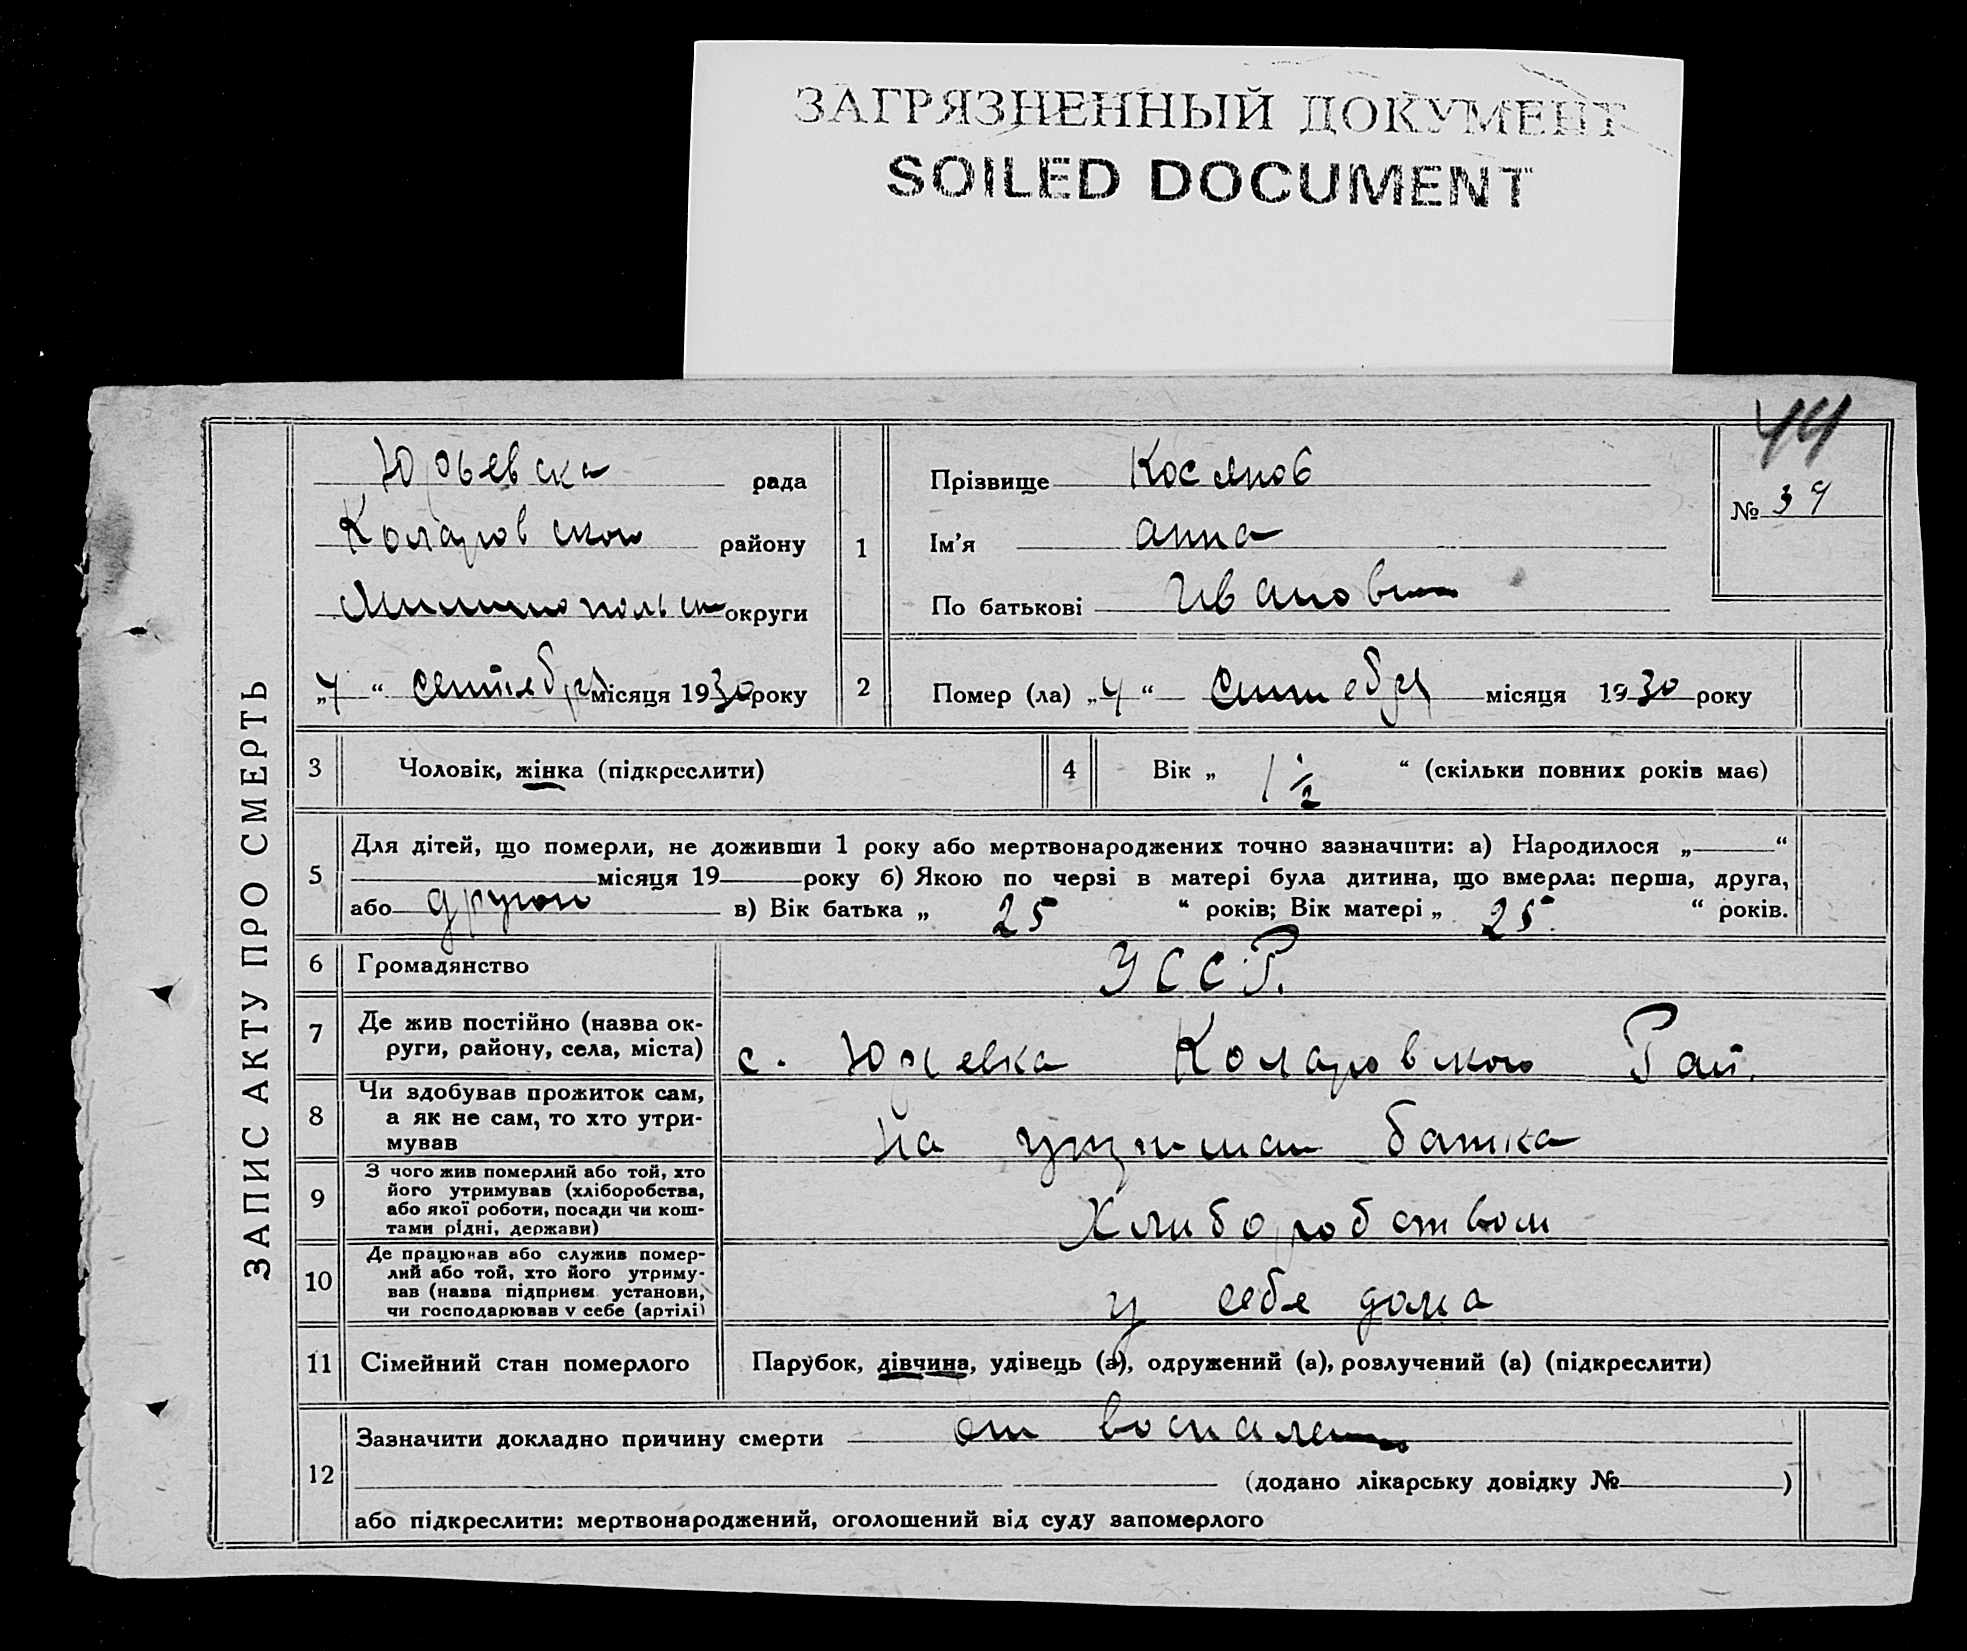 ЗАГРЯЗНЕННЫЙ ДОКУМЕНТ
SOILED DOCUMENT
44
ЗАПИС АКТУ ПРО СМЕРТЬ
Юрьевска рада
Коларовского району
округи
„4“ сентября місяця 1930 року
1
Прізвище Косянов
Ім'я Анна
По батькові Ивановна
№ 39
2
Помер (ла) „4“ сентебря місяця 1930 року
3
Чоловік, жінка (підкреслити)
4
Вік „1 1/2“ (скільки повних років має)
5
Для дітей, що померли, не доживши 1 року або мертвонароджених точно зазначити: а) Народилося „ “
місяця 19 року б) Якою по черзі в матері була дитина, що вмерла: перша, друга,
або другою в) Вік батька „25“ років; Вік матері „25“ років.
6
Громадянство
УССР.
7
Де жив постійно (назва ок-
руги, району, села, міста)
с. Юрьевка Коларовского Рай.
8
Чи здобував прожиток сам,
а як не сам, то хто утри-
мував
На батька
9
З чого жив померлий або той, хто
його утримував (хліборобства,
або якої роботи, посади чи кош-
тами рідні, держави)
Хлиборобством
10
Де працював або служив помер-
лий або той, хто його утриму-
вав (назва підприєм. установи,
чи господарював у себе (артілі)
у себе дома
11
Сімейний стан померлого
Парубок, дівчина, удівець (а), одружений (а), розлучений (а) (підкреслити)
12
Зазначити докладно причину смерти от воспаления
(додано лікарську довідку № )
або підкреслити: мертвонароджений, оголошений від суду запомерлого